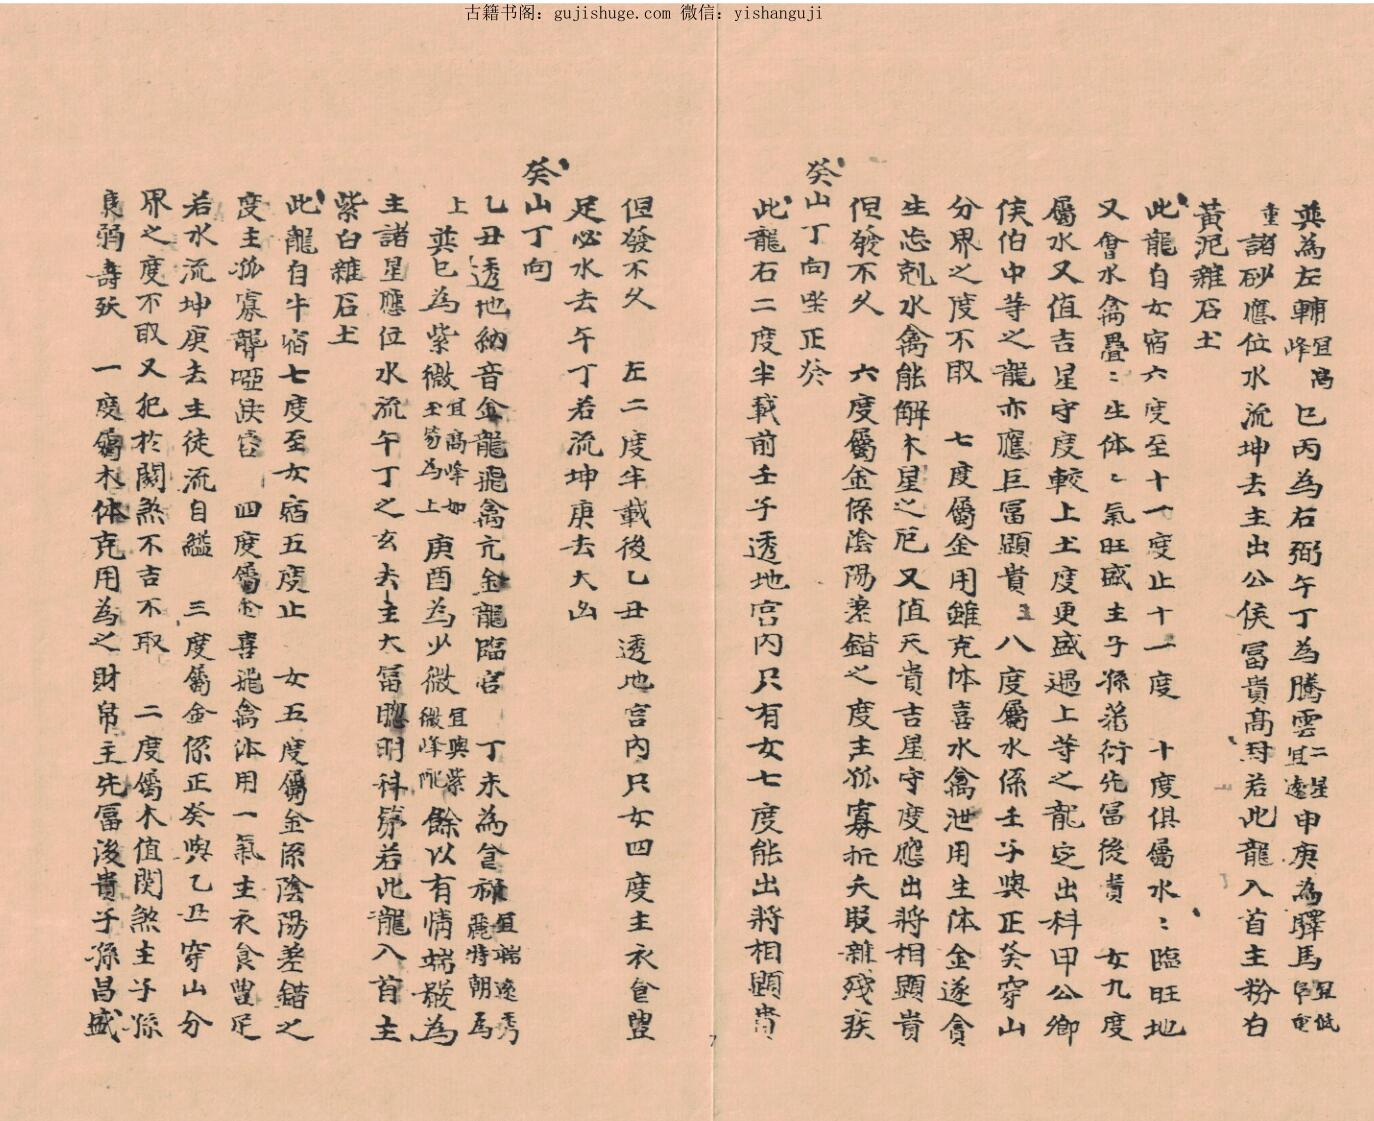 古籍书阁：gujishuge.com 微信：yishanguji
巽為左輔峰宜高 巳丙為右弼午丁為騰雲二星宜遠申庚為驛馬宜低
重諸砂應位水流坤去主出公侯冨貴高封若此龍入首主粉白
黃泥雜石土
此龍自女宿六度至十一度止十一度 十度俱屬水〻臨旺地
又會水禽疊〻生体〻氣旺盛主子孫蕃衍先冨後貴 女九度
屬水又值吉星守度較上土度更盛遇上等之龍定出科甲公卿
侯伯中等之龍亦應巨冨顕貴 八度屬水係壬子與正癸穿山
分界之度不取 七度屬金用雖克体喜水禽泄用生体金遂貪
生忘剋水禽能解木星之厄又值天貴吉星守度應出將相顕貴
但發不久 六度屬金係陰陽差錯之度主孤寡折夭殹雜殘疾
癸山丁向坐正癸
此龍右二度半載前壬子透地宮內只有女七度能出將相顕貴
但發不久 左二度半載後乙丑透地宮內只女四度主衣食豐
足必水去午丁若流坤庚去大凶
癸山丁向
乙丑透地納音金龍飛禽亢金龍臨官 丁未為食祿宜端遠秀麗特朝為
上 巽巳為紫微宜高峰如玉笋為上庚酉為少微宜與紫微峰配餘以有情端嚴為
主諸星應位水流午丁之玄去主大冨聰明科第若此龍入首主
紫白雜石土
此龍自牛宿七度至女宿五度止 女五度屬金係陰陽差錯之
度主孤寡聾啞缺唇 四度屬金喜飛禽体用一氣主衣食豐足
若水流坤庚去主徒流自縊 三度屬金係正癸與乙丑穿山分
界之度不取又犯於關煞不吉不取 二度屬木值関煞主子孫
衰弱壽殀 一度屬木体克用為之財帛主先冨後貴子孫昌盛
7